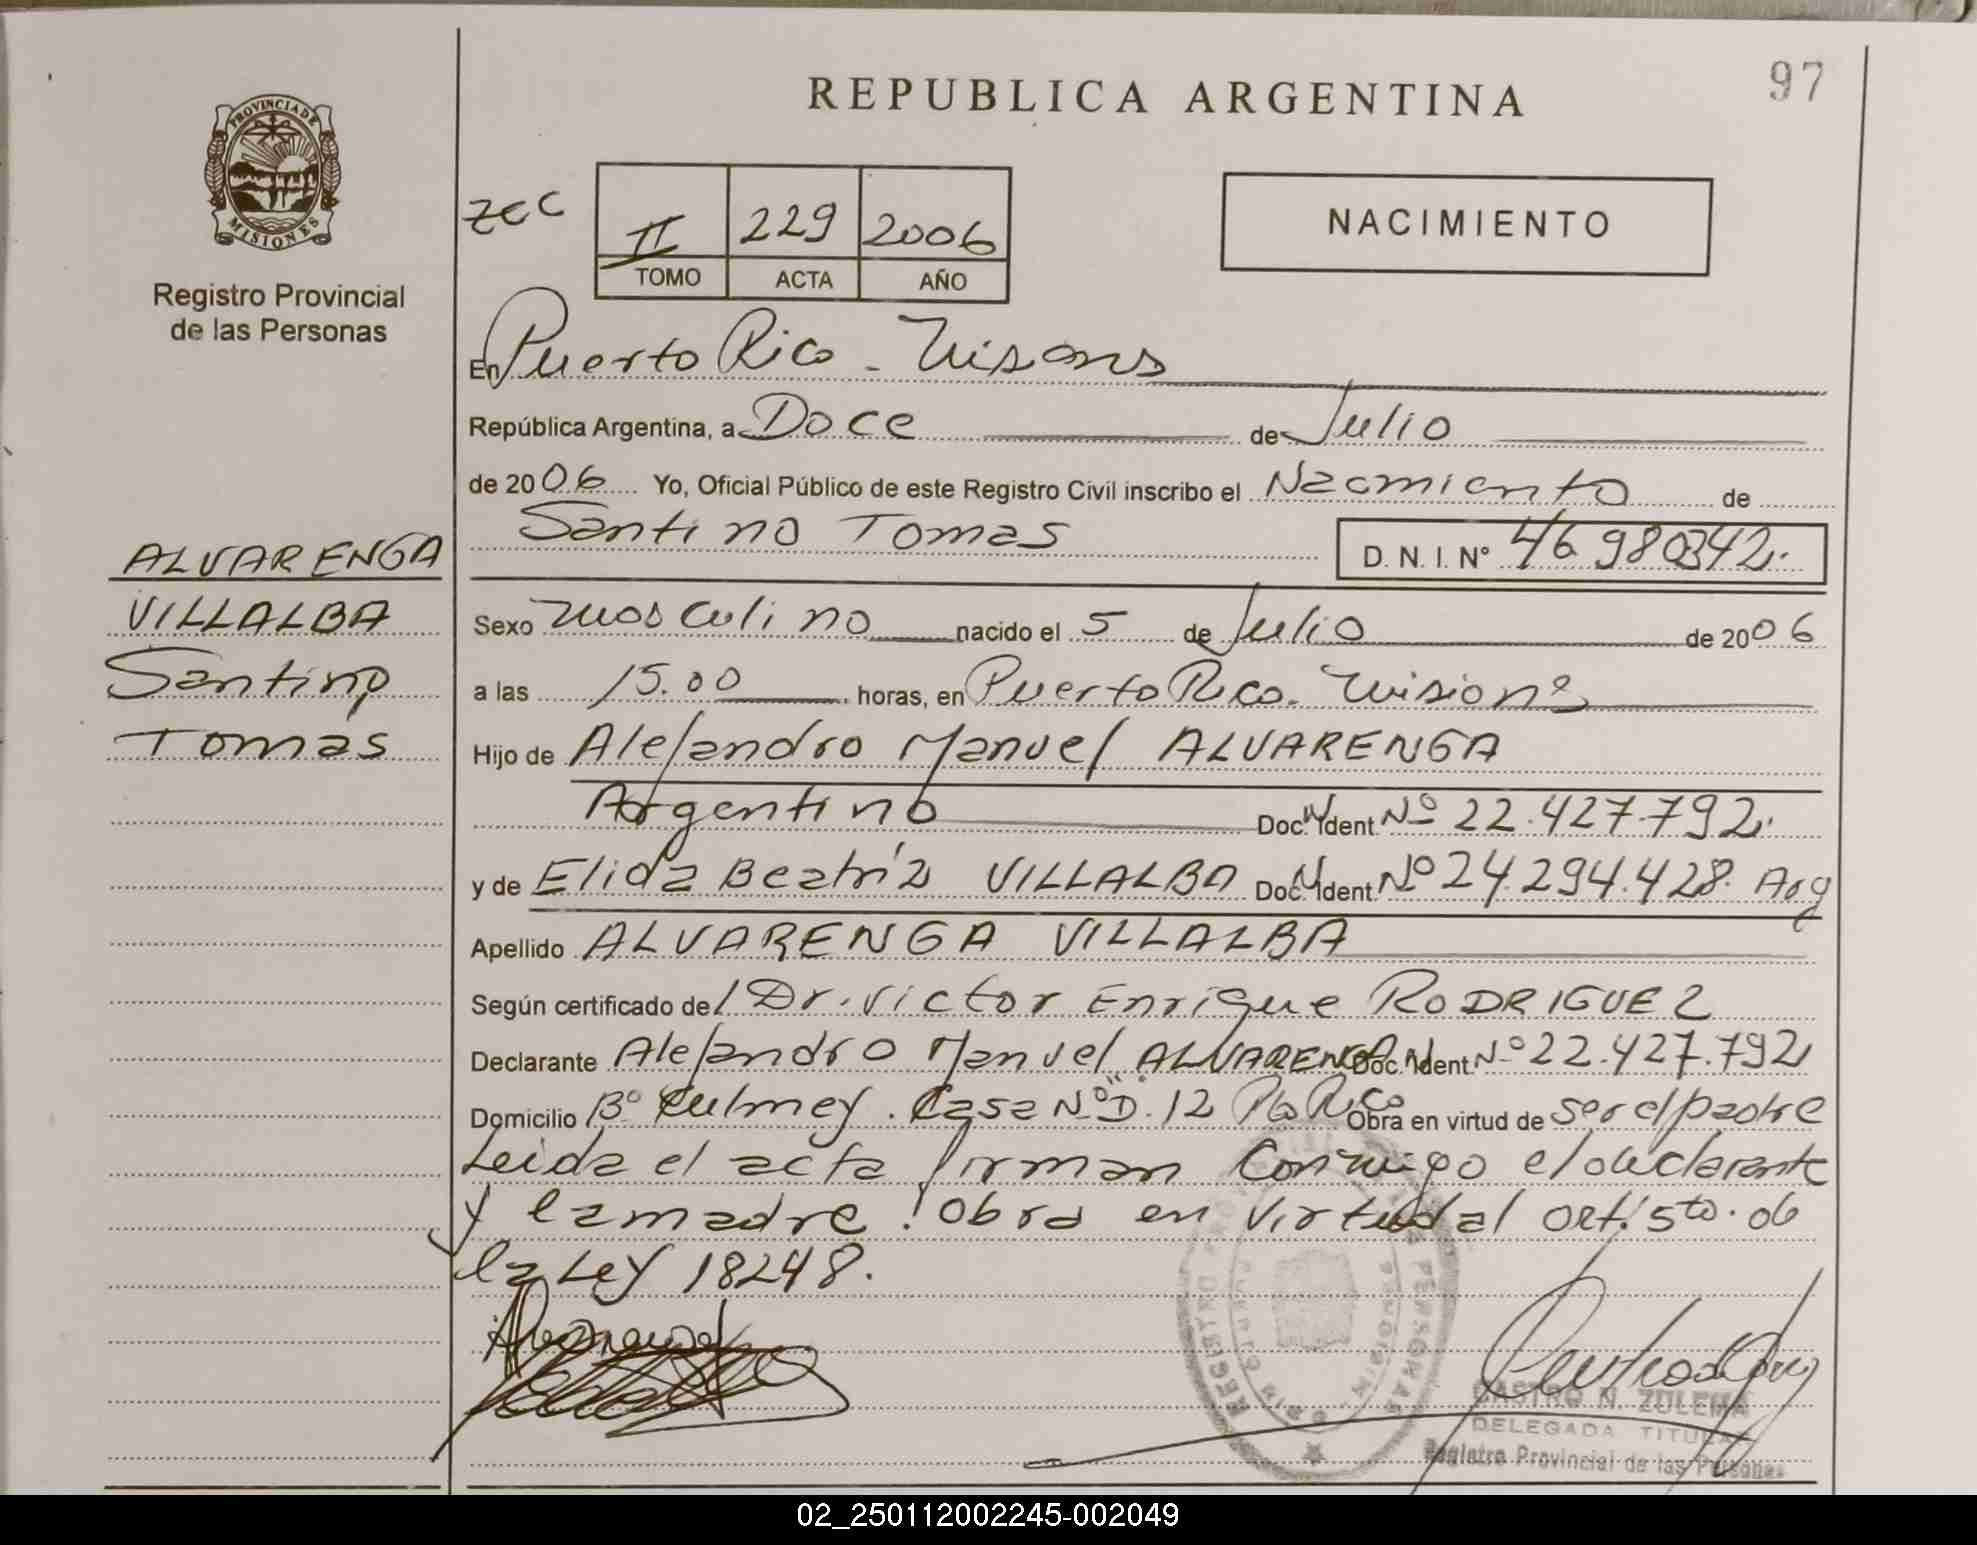 97
REPUBLICA ARGENTINA
PROVINCIA DE
MISIONES
Registro Provincial
de las Personas
zcc
II 229 2006
TOMO ACTA AÑO
NACIMIENTO
En Puerto Rico - Misiones
República Argentina, a Doce de Julio
de 2006 Yo, Oficial Público de este Registro Civil inscribo el Nacimiento de
Santino Tomas D. N. I. Nº 46.980342.
ALVARENGA
VILLALBA
Santino
Tomas
Sexo Masculino nacido el 5 de Julio de 2006
a las 15.00 horas, en Puerto Rico - Misiones
Hijo de Alejandro Manuel ALVARENGA
Argentino Doc. Ident. Nº 22.427.792.
y de Elida Beatríz VILLALBA Doc. Ident. Nº 24.294.428. Arg
Apellido ALVARENGA VILLALBA
Según certificado del Dr. Victor Enrique RODRIGUEZ
Declarante Alejandro Manuel ALVARENGA Doc. Ident. Nº 22.427.792
Domicilio Bº Culmey. Casa Nº "D". 12 Pto Rico Obra en virtud de ser el padre
Leida el acta firman conmigo el declarante
y la madre. Obra en virtud al Art. 5to. de
la Ley 18248.
REGISTRO PROVINCIAL DE LAS PERSONAS
CASTRO N. ZULEMA
DELEGADA TITULAR
Registro Provincial de las Personas
02_250112002245-002049